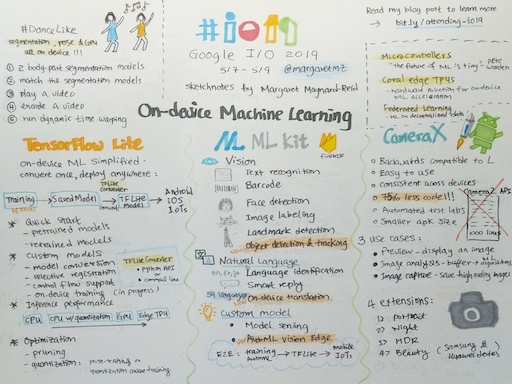 #DanceLike
segmentation, pose & GPU
all on device !!!
① 2 body-part segmentation models
② match the segmentation models
③ play a video
④ encode a video
⑤ run dynamic time warping
#io19
Google I/O 2019
5/7 - 5/9 @margaretmz
sketchnotes by Margaret Maynard-Reid
Read my blog post to learn more
→ bit.ly/attending-2019
Microcontrollers
- "the future of ML is tiny" - pete warden
Coral edge TPUs
- hardware for on-device
ML acceleration
Federated Learning
- ML on decentralized data
On-device Machine Learning
TensorFlow Lite
on-device ML simplified.
convert once, deploy anywhere:
Training → Saved Model → TFLite converter → TFLite model → Android
iOS
IoTs
* Quick start
- pretrained models
- retrained models
* Custom models
- model conversion
TFLite Converter
• Python API
• command line
- selective registration
- control flow support
- on-device training (in progress)
* Inference performance
CPU CPU w/quantization GPU Edge TPU
* Optimization
- pruning
- quantization: post-training or
quantization aware training
ML ML kit
Vision
Text recognition
Barcode
Face detection
Image labeling
Landmark detection
Object detection & tracking
Natural Language
Language identification
Smart reply
59 languages On-device translation
Custom model
• Model serving
• AutoML Vision Edge
E2E: training AutoML → TFLite → Mobile
IoTs
CameraX
Backwards compatible to L
Easy to use
Consistent across devices
75% less code!!!
Automated test labs
Smaller apk size
Camera2 API
1000 lines
3 use cases:
• Preview - display an image
• Image analysis - buffer + algorithms
• Image capture - save high quality images
4 extensions:
1) Portrait
2) Night
3) HDR
4) Beauty (Samsung &
Huawei devices)